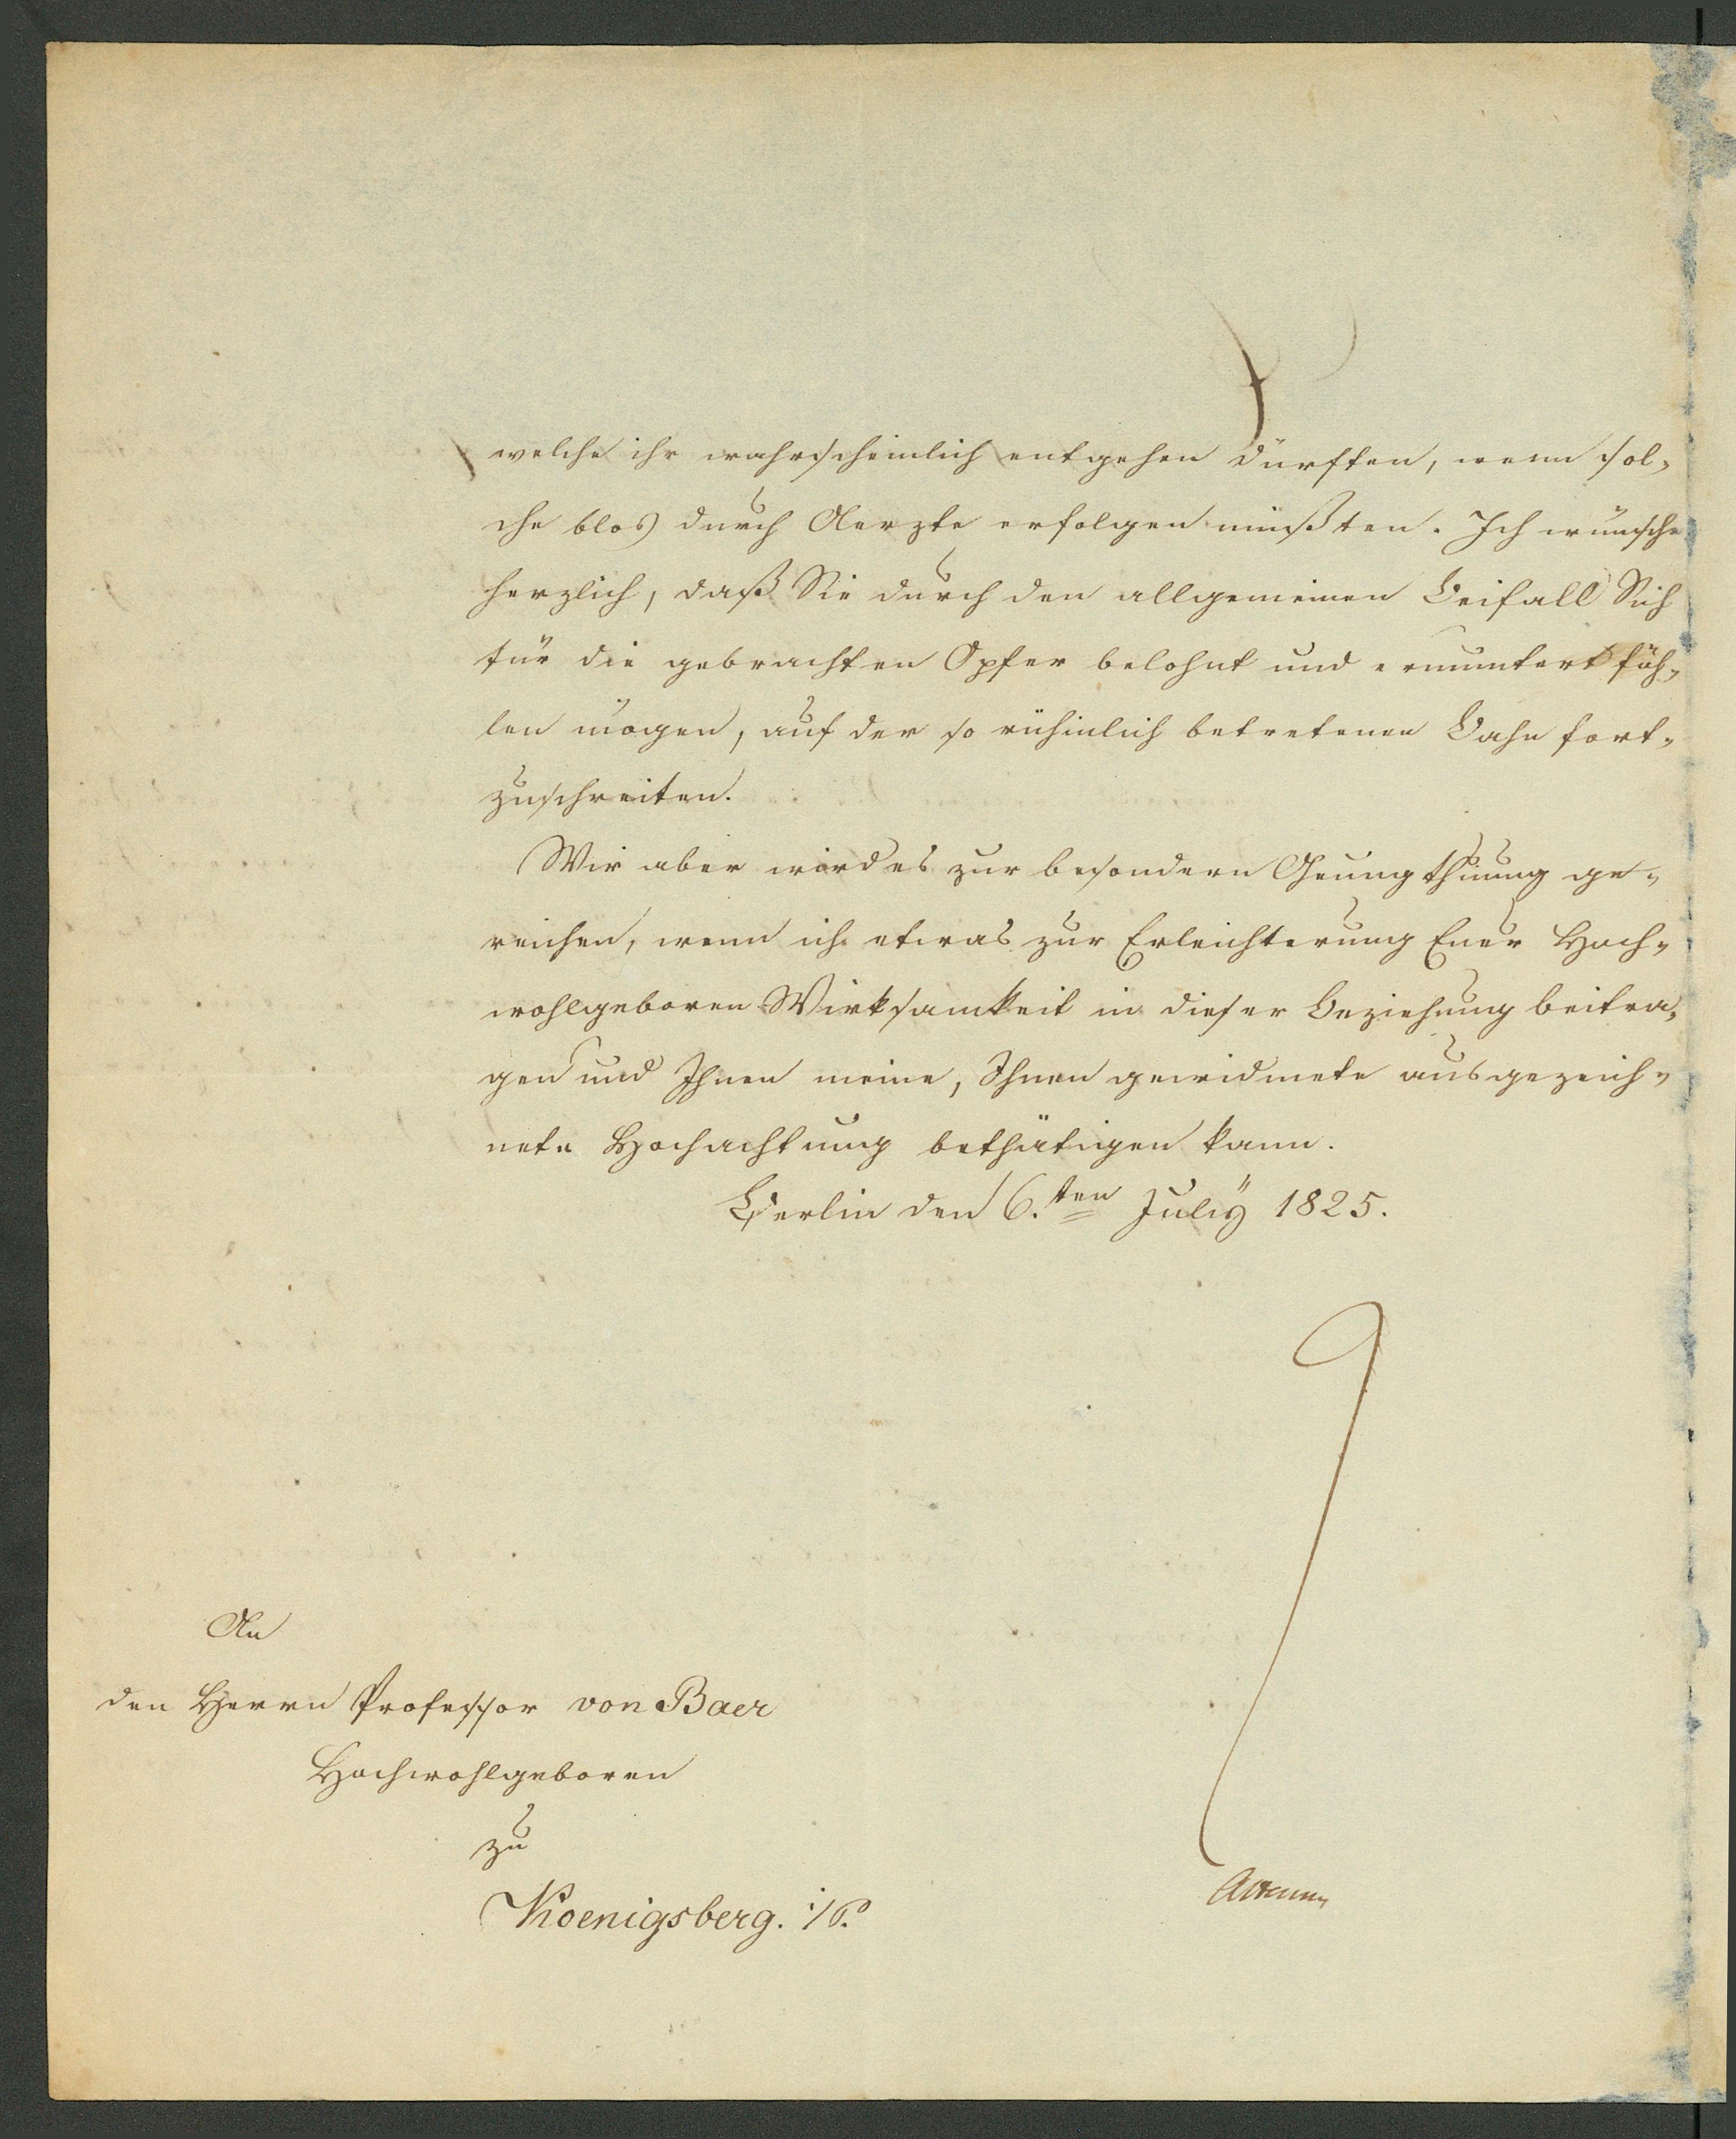 welche ihr wahrscheinlich entgehen dürften, wenn sol-
che blos durch Aerzte erfolgen müßten. Ich wünsche
herzlich, daß Sie durch den allgemeinen Beifall Sich
für die gebrachten Opfer belohnt und ermuntert füh-
len mögen, auf der so rühmlich betretenen Bahn fort-
zuschreiten.
Mir aber wird es zur besondern Genugthuung ge-
reichen, wenn ich etwas zur Erleichterung Euer Hoch-
wohlgeboren Wirksamkeit in dieser Beziehung beitra-
gen und Ihnen meine, Ihnen gewidmete ausgezeich-
nete Hochachtung bethätigen kann.
Berlin den 6.ten July 1825.
An
den Herrn Professor von Baer
Hochwohlgeboren
zu
Koenigsberg. i/P.
Altenstein